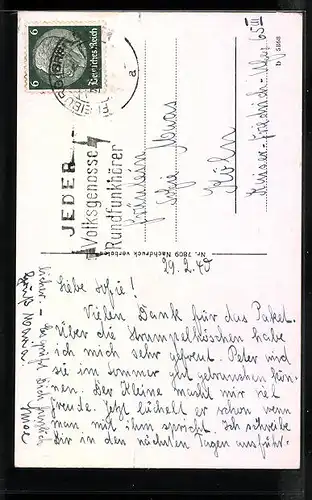 6 6
Deutsches Reich
a
JEDER
Volksgenosse
Rundfunkhörer
Fräulein
Sofie Maas
Köln
Kaiser-Friedrich-Ufer 65 III
D 5868
Nr. 7809 Nachdruck verboten
29.2.40
Liebe Sofie!
Vielen Dank für das Paket.
Über die Strampelhöschen habe
ich mich sehr gefreut. Peter wird
sie im Sommer gut gebrauchen kön-
nen. Der Kleine macht mir viel
Freude. Jetzt lächelt er schon wenn
man mit ihm spricht. Ich schreibe
Dir in den nächsten Tagen ausführ-
licher –